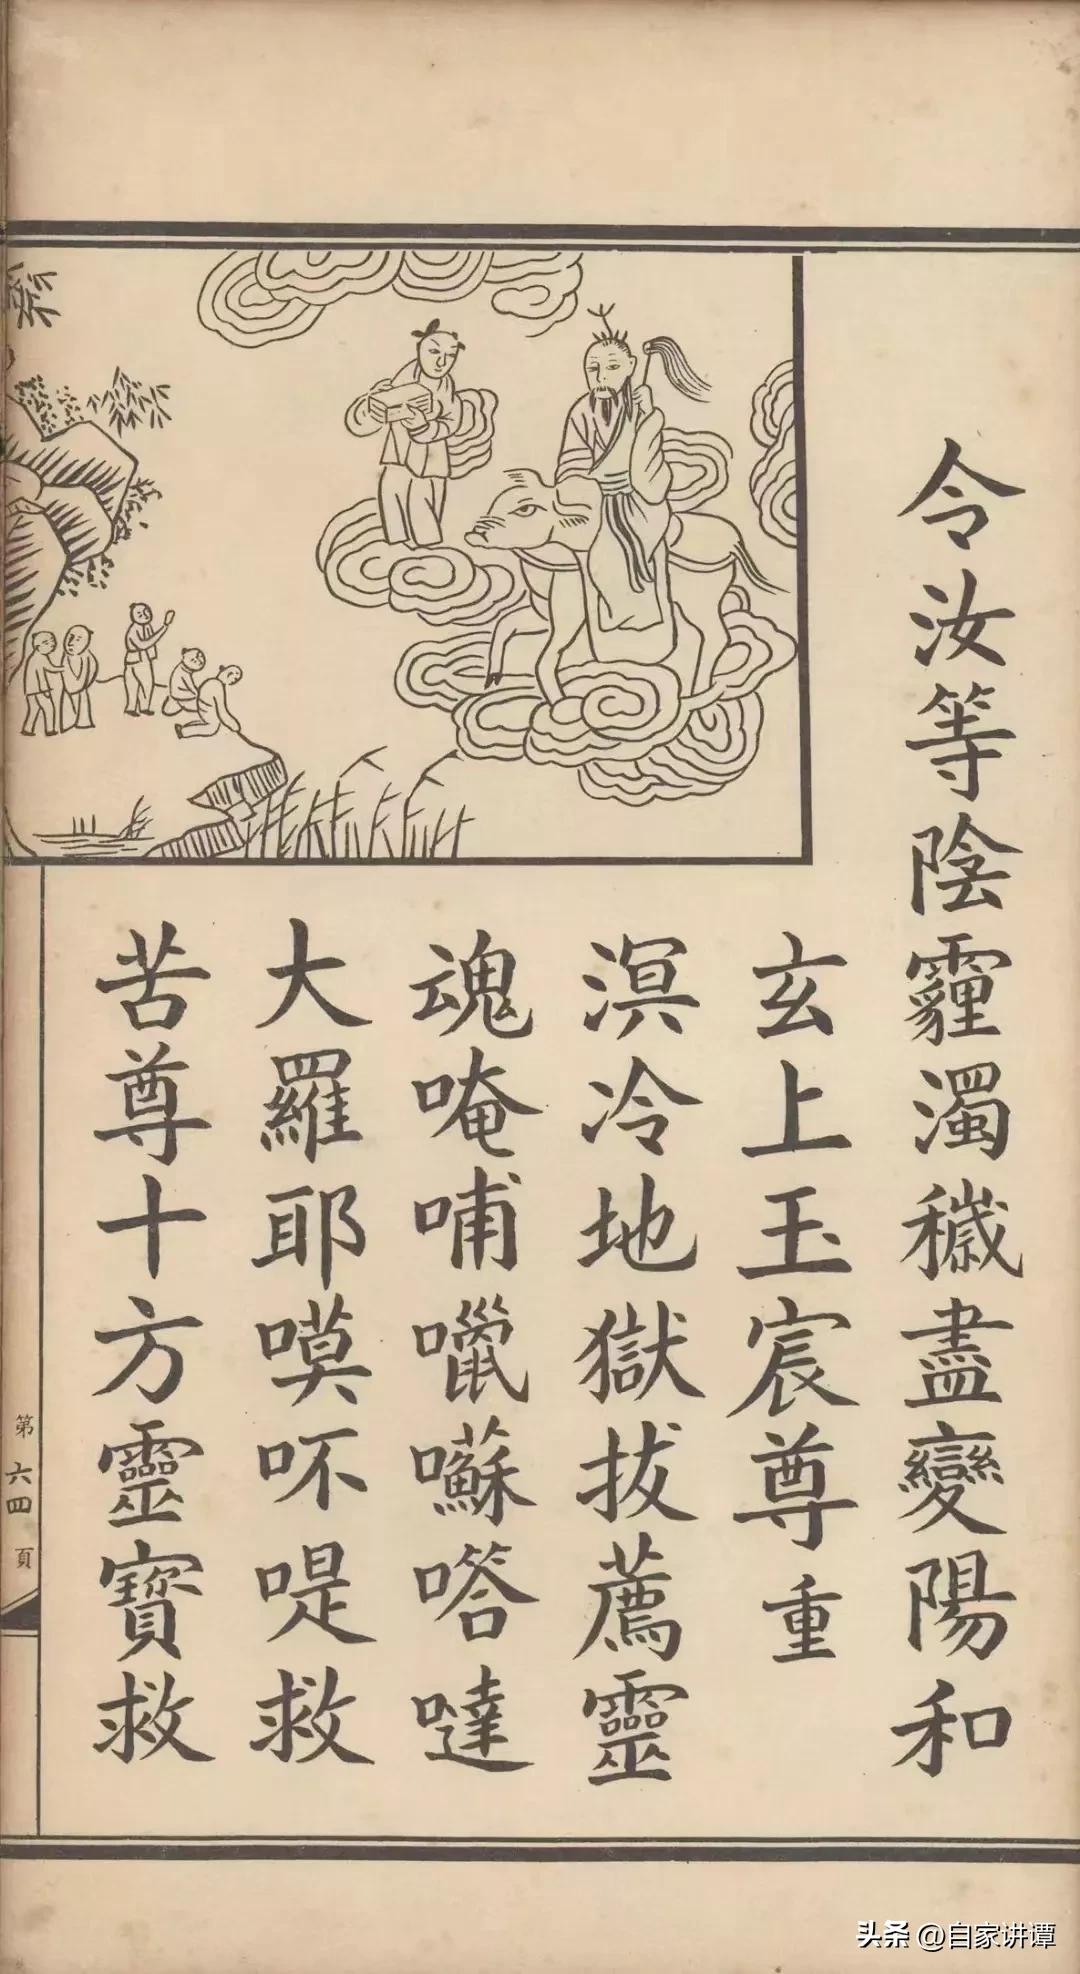 令汝等陰霾濁穢盡變陽和
玄上玉宸尊重
溟冷地獄拔薦靈
魂唵哺囉囌嗒噠
大羅耶嘆吥喔救
苦尊十方靈寶救
第六四頁
头条 @自家讲谭